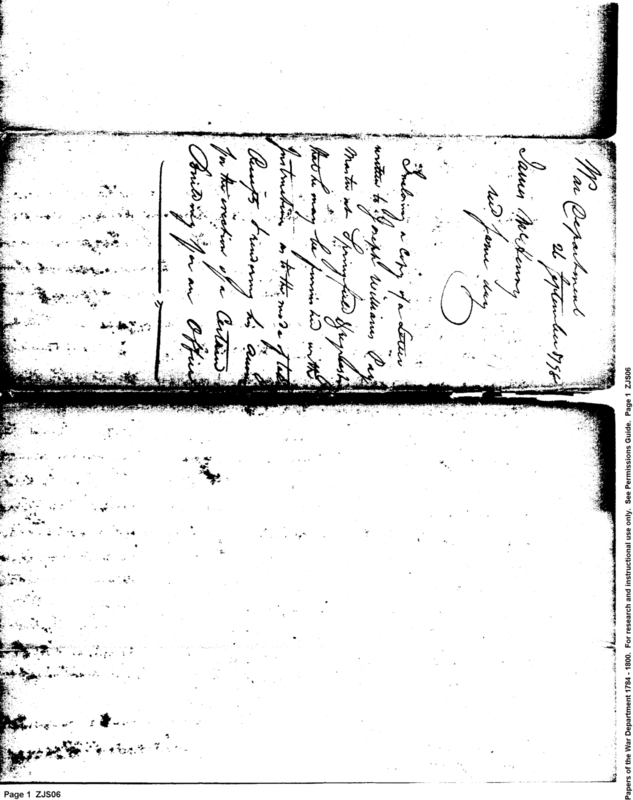 War Department
21 September 1798
James McHenry
Inclosing a Copy of a Letter
written to Joseph Williams Pay
Master at Springfield &
that he may be furnished with
Instructions as to the mode of
Receipts & rendering his
for the erection of a Certain
Building for an Office
Papers of the War Department 1784 - 1800. For research and instructional use only. See Permissions Guide. Page 1 ZJS06
Page 1 ZJS06